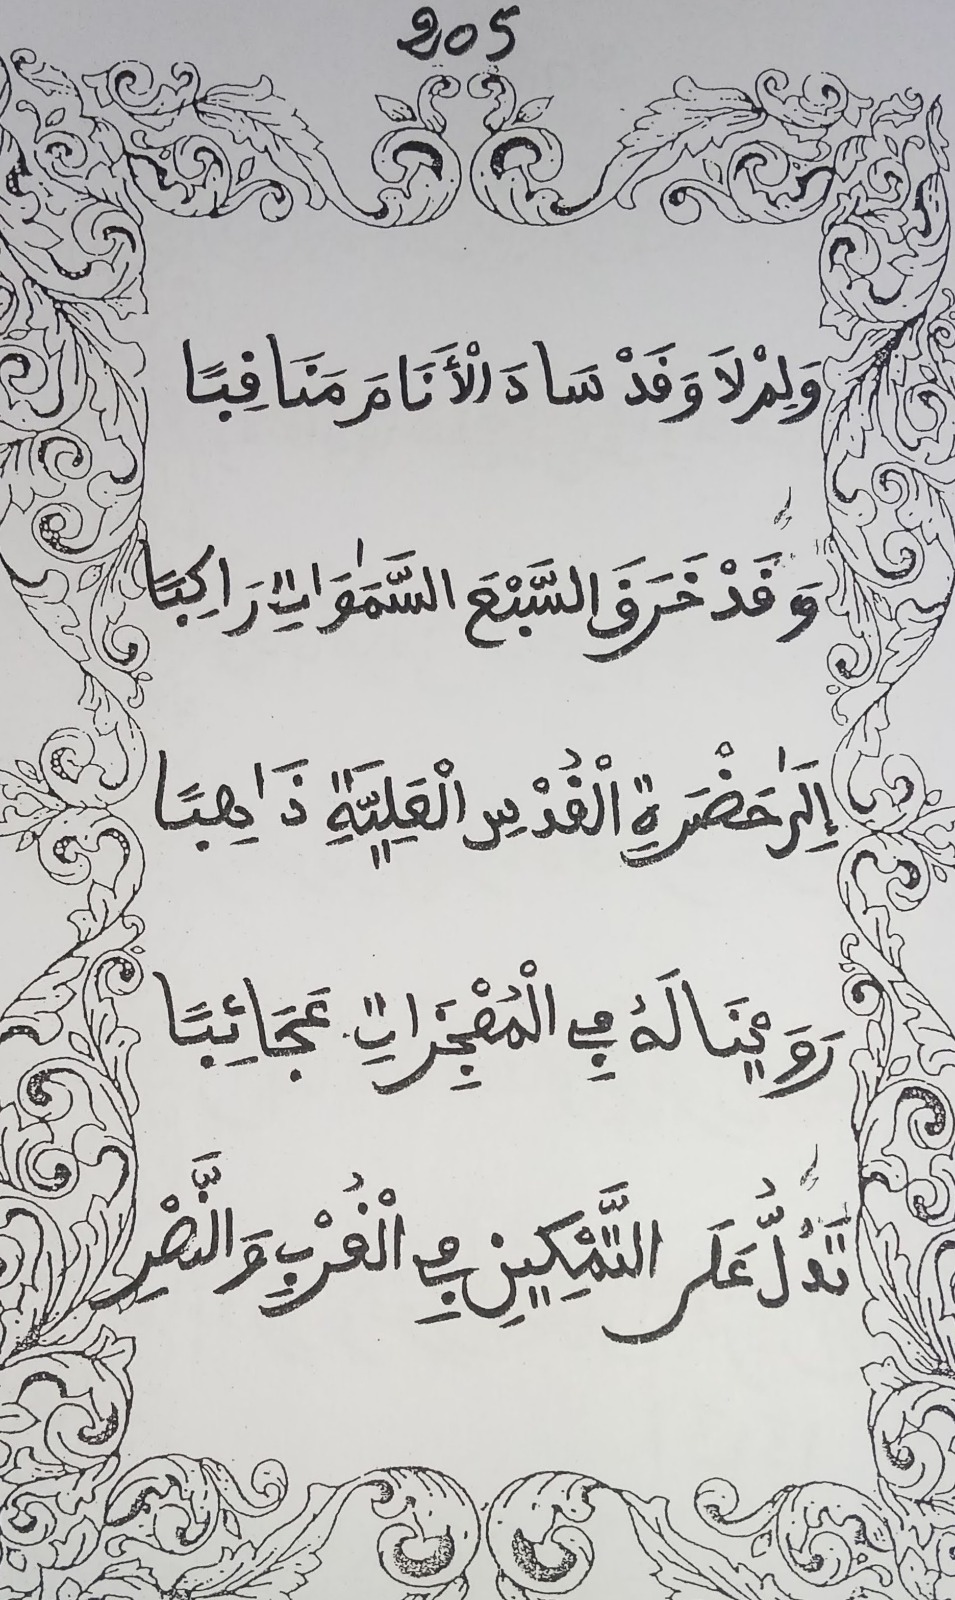 205
وَلِمْ لَا وَقَدْ سَادَ الْأَنَامَ مَنَاقِبًا
وَقَدْ خَرَقَ السَّبْعَ السَّمٰوَاتِ رَاكِبًا
إِلَىٰ حَضْرَةِ الْقُدْسِ الْعَلِيَّةِ ذَاهِبًا
رَوَيْنَا لَهُ فِي الْمُعْجِزَاتِ عَجَائِبًا
تَدُلُّ عَلَى التَّمْكِينِ فِي الْقُرْبِ وَالنَّصْرِ